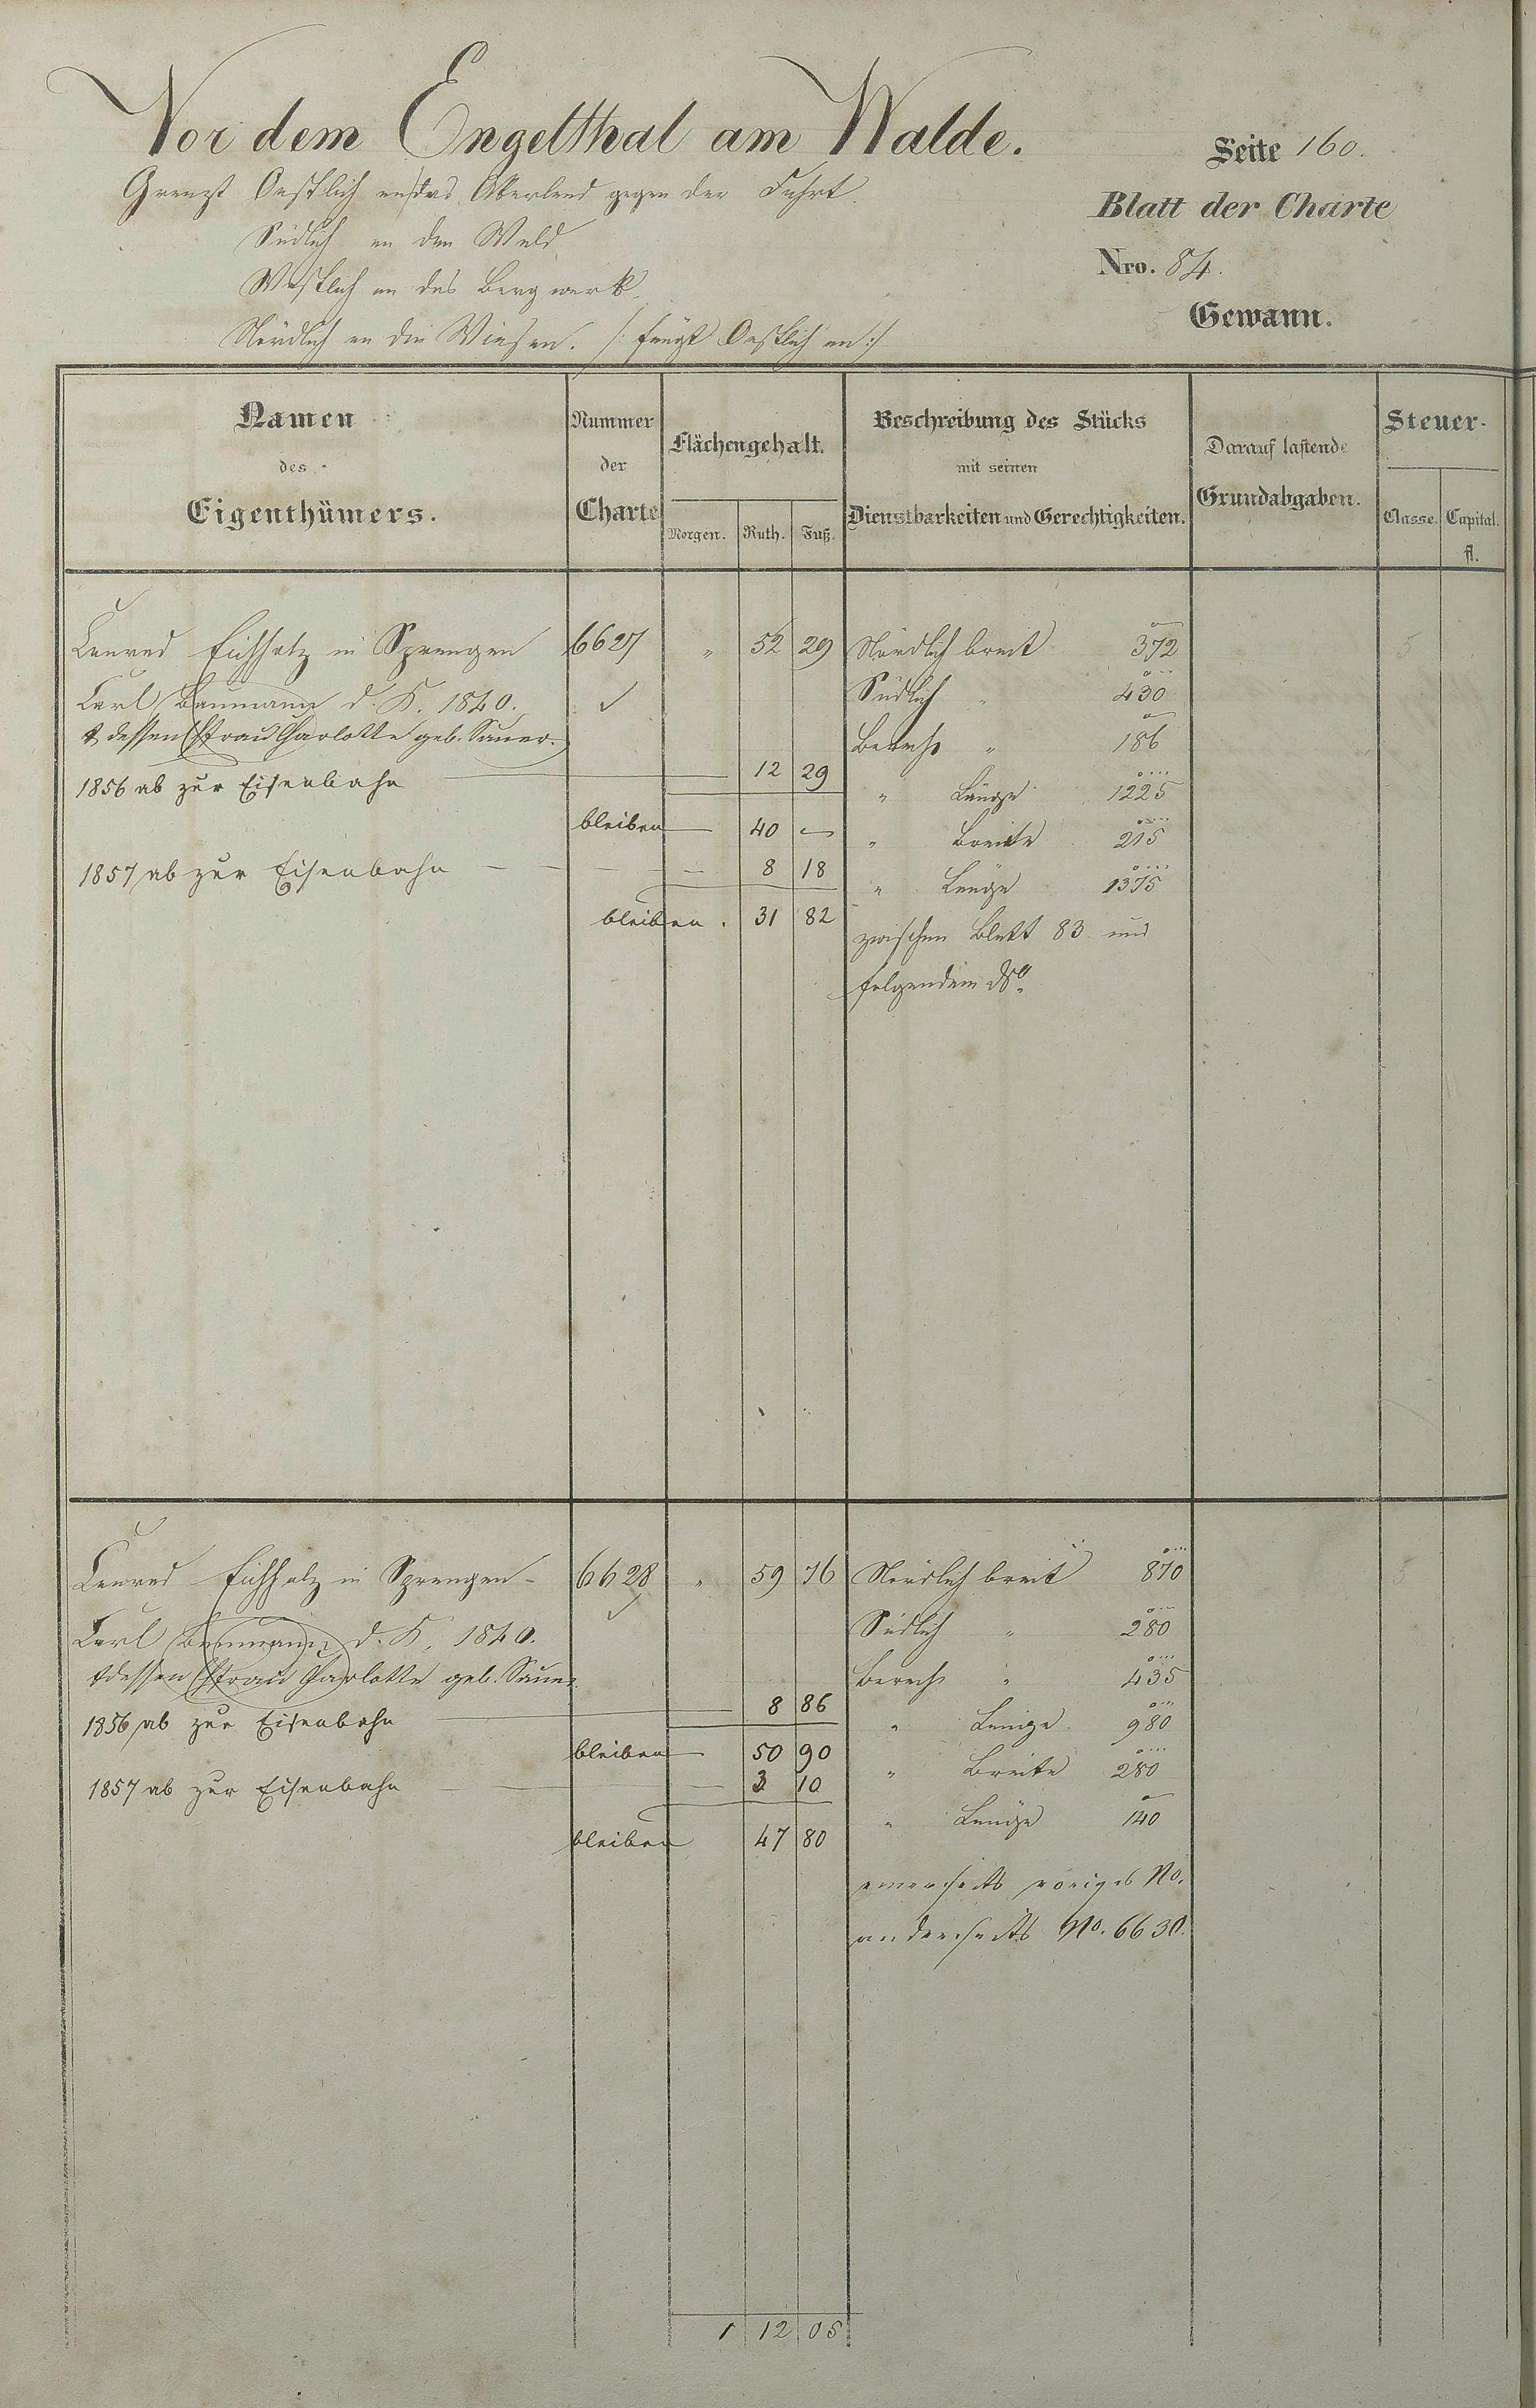 Vor dem Engelthal am Walde.
Seite 160.
Grenzt Oestlich an das Oberland gegen der Fuhrt.
Blatt der Charte
Südlich an den Wald
Nro. 84.
Westlich an das Bergwerk.
Gewann.
Nördlich an die Wiesen. /: fängt Oestlich an :/
Namen
des
Eigenthümers.
Nummer
der
Charte
Flächengehalt.
Morgen. Ruth. Fuß.
Beschreibung des Stücks
mit seinen
Dienstbarkeiten und Gerechtigkeiten.
Darauf lastende
Grundabgaben.
Steuer-
Classe. Capital.
fl.
Conrad Eichholz in Sprengen 6627 " 52 29 Nördlich breit 372 5
Carl Baumann d. K. 1840. Südlich " 430
& dessen Ehefrau Charlotte geb. Sauer. Berechs " 186
1856 ab zur Eisenbahn — 12 29 " Länge 1225
bleiben — 40 — " Breite 215
1857 ab zur Eisenbahn — 8 18 " Länge 1375
bleiben. 31 82 zwischen Blatt 83 und
folgendem No.
Conrad Eichholz in Sprengen 6628 " 59 76 Nördlich breit 870 5
Carl Baumann d. K. 1840. Südlich " 280
& dessen Ehefrau Charlotte geb. Sauer. Berechs " 435
1856 ab zur Eisenbahn — 8 86 " Länge 980
bleiben — 50 90 " Breite 280
1857 ab zur Eisenbahn — 3 10 " Länge 140
bleiben 47 80
einerseits voriges No.
anderseits No. 6630.
1 12 05